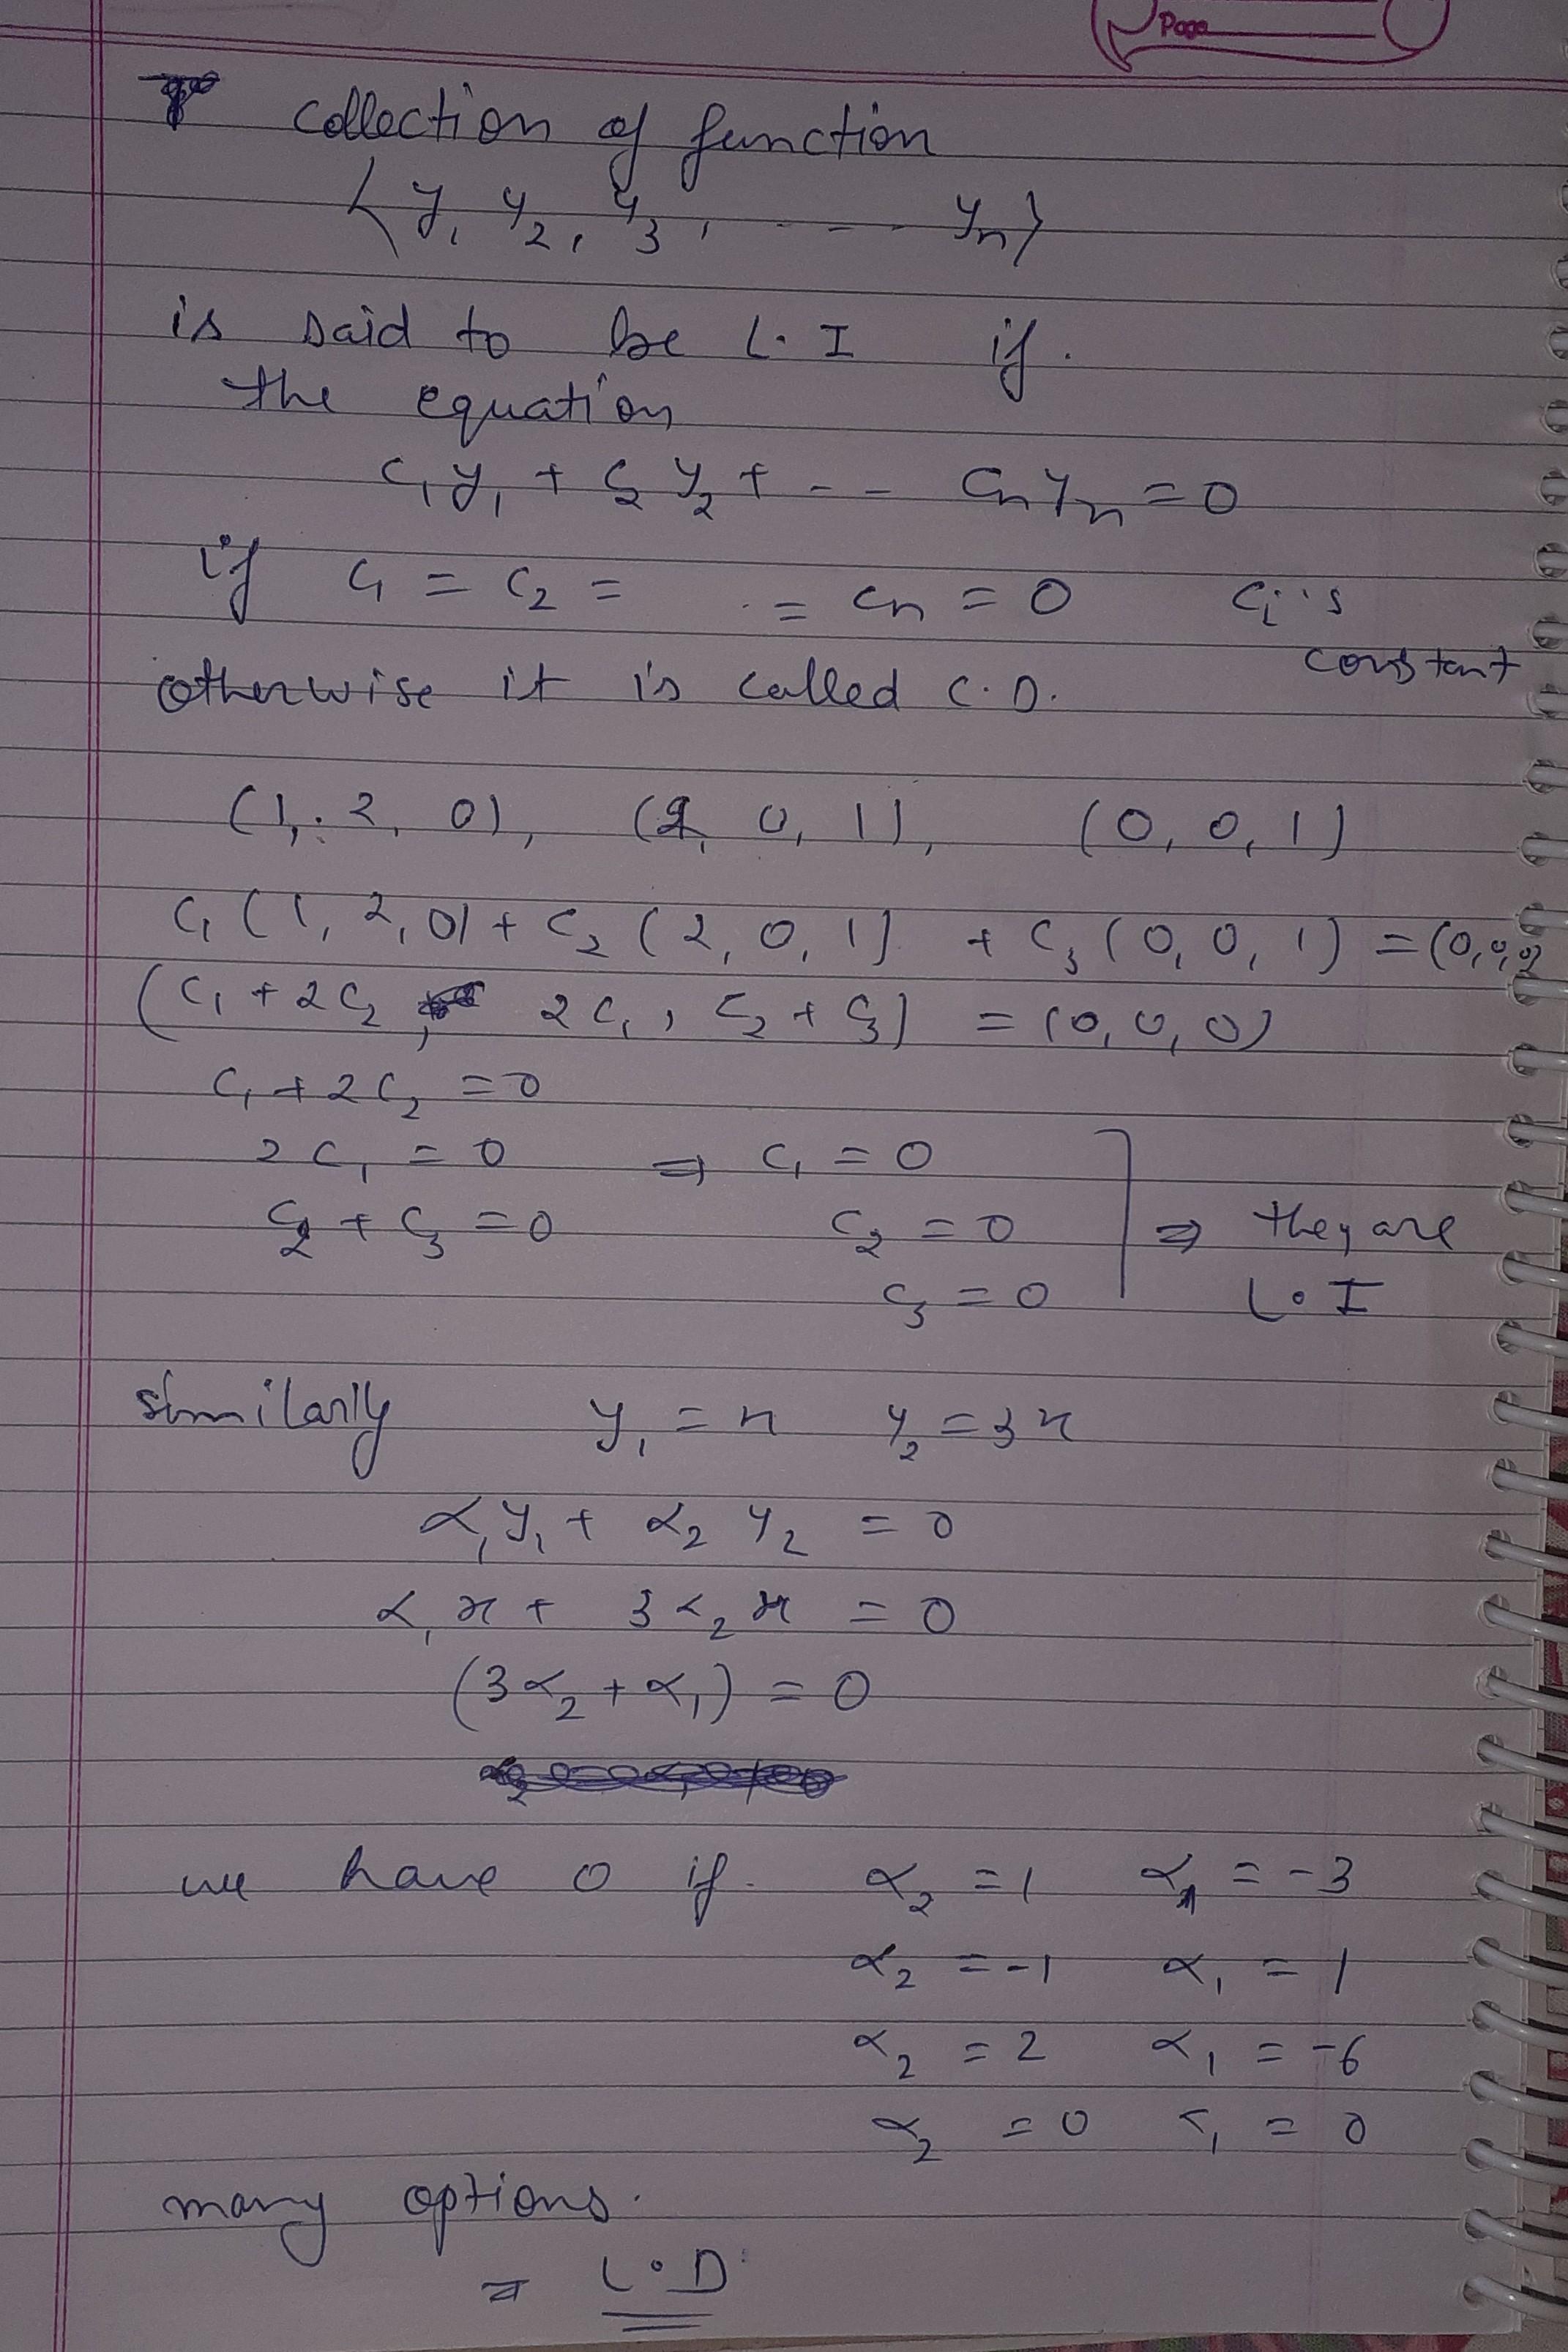 Page
collection of function
{y₁, y₂, y₃, - - - yₙ}
is said to be L.I if.
the equation
c₁y₁ + c₂y₂ + - - cₙyₙ = 0
if c₁ = c₂ = . = cₙ = 0 cᵢ's
constant
otherwise it is called L.D.
(1, 2, 0), (2, 0, 1), (0, 0, 1)
c₁(1, 2, 0) + c₂(2, 0, 1) + c₃(0, 0, 1) = (0,0,0)
(c₁ + 2c₂, 2c₁, c₂ + c₃) = (0, 0, 0)
c₁ + 2c₂ = 0
2c₁ = 0 ⇒ c₁ = 0
c₂ + c₃ = 0 c₂ = 0 ⇒ they are
c₃ = 0 L.I
similarly y₁ = x y₂ = 3x
α₁y₁ + α₂y₂ = 0
α₁x + 3α₂x = 0
(3α₂ + α₁) = 0
we have 0 if. α₂ = 1 α₁ = -3
α₂ = -1 α₁ = 1
α₂ = 2 α₁ = -6
α₂ = 0 α₁ = 0
many options.
⇒ L.D